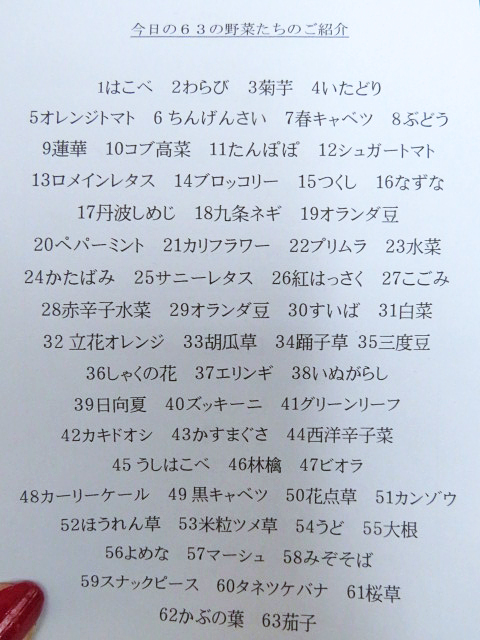 今日の６３の野菜たちのご紹介
1はこべ 2わらび 3菊芋 4いたどり
5オレンジトマト 6ちんげんさい 7春キャベツ 8ぶどう
9蓮華 10コブ高菜 11たんぽぽ 12シュガートマト
13ロメインレタス 14ブロッコリー 15つくし 16なずな
17丹波しめじ 18九条ネギ 19オランダ豆
20ペパーミント 21カリフラワー 22プリムラ 23水菜
24かたばみ 25サニーレタス 26紅はっさく 27こごみ
28赤辛子水菜 29オランダ豆 30すいば 31白菜
32 立花オレンジ 33胡瓜草 34踊子草 35三度豆
36しゃくの花 37エリンギ 38いぬがらし
39日向夏 40ズッキーニ 41グリーンリーフ
42カキドオシ 43かすまぐさ 44西洋辛子菜
45うしはこべ 46林檎 47ビオラ
48カーリーケール 49黒キャベツ 50花点草 51カンゾウ
52ほうれん草 53米粒ツメ草 54うど 55大根
56よめな 57マーシュ 58みぞそば
59スナックピース 60タネツケバナ 61桜草
62かぶの葉 63茄子